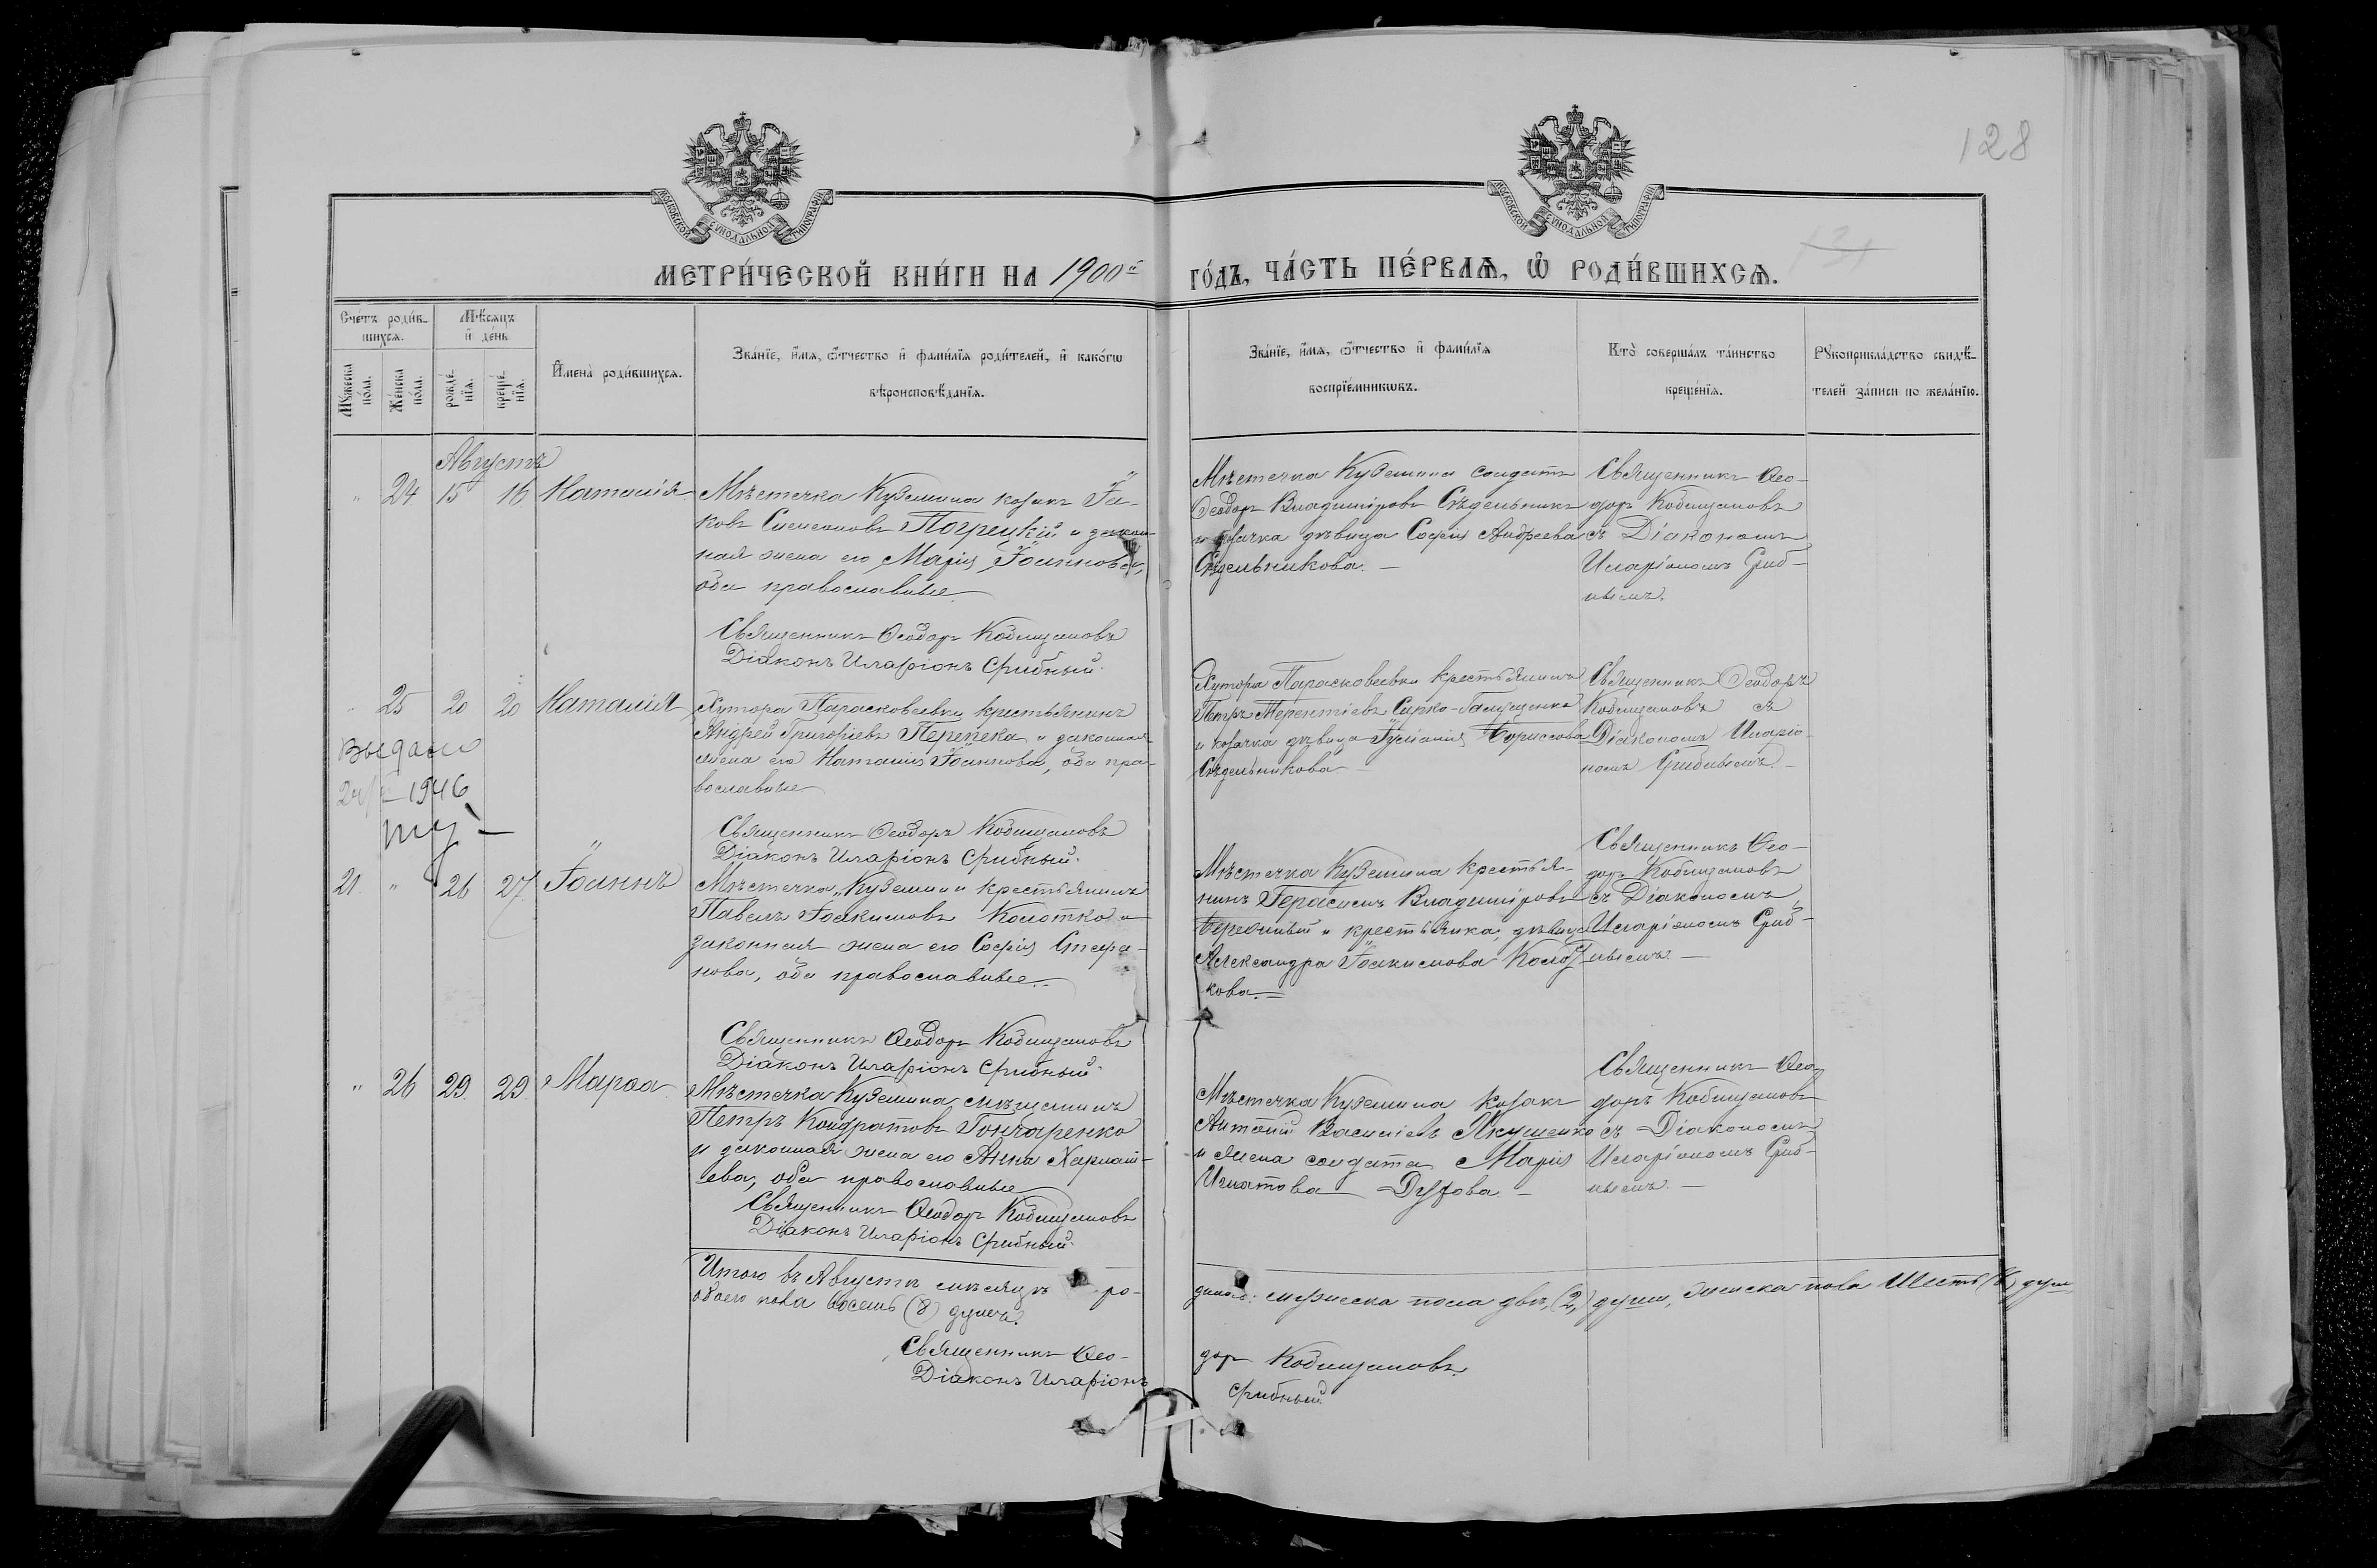 128
МОСКОВСКОЙ СѴНОДАЛЬНОЙ ТИПОГРАФІИ
МОСКОВСКОЙ СѴНОДАЛЬНОЙ ТИПОГРАФІИ
МЕТРИ́ЧЕСКОЙ КНИ́ГИ НА 1900й ГО́ДЪ, ЧА́СТЬ ПЕ́РВАѦ, Ѡ҆ РОДИ́ВШИХСѦ.
Сче́тъ роди́в-
шихсѧ.
Мꙋ́жеска по́ла.
Же́нска по́ла.
Мѣ́сѧцъ
и҆ де́нь
рожде́-
нїѧ.
креще́-
нїѧ.
И҆мена̀ роди́вшихсѧ.
Зва́нїе, и҆́мѧ, ѻ҆́тчество и҆ фами́лїѧ роди́телей, и҆ како́гѡ
вѣроисповѣ́данїѧ.
Зва́нїе, и҆́мѧ, ѻ҆́тчество и҆ фами́лїѧ
воспрїе́мникѡвъ.
Кто̀ соверша́лъ та́инство
креще́нїѧ.
Рꙋкоприкла́дство свидѣ́-
телей за́писи по жела́нїю.
Августъ
" 24 15 16 Наталія
Мѣстечка Куземина козакъ Іа-
ковъ Симеоновъ Погрецкій и закон-
ная жена его Марія Іоаннова,
оба православные
Священникъ Ѳеодоръ Кобищановъ
Діаконъ Иларіонъ Грибный.
Мѣстечка Куземина солдатъ
Ѳеодоръ Владиміровъ Сѣдельникъ
и козачка дѣвица Софія Андреева
Сѣдельникова.
Священникъ Ѳео-
доръ Кобищановъ
съ Діакономъ
Иларіономъ Гриб-
нымъ.
25 20 20 Наталія
Хутора Парасковеевки крестьянинъ
Андрей Григоріевъ Перепека и законная
жена его Наталія Іоаннова, оба пра-
вославные
Священникъ Ѳеодоръ Кобищановъ
Діаконъ Иларіонъ Грибный.
Хутора Парасковеевки крестьянинъ
Петръ Терентіевъ
и козачка дѣвица Іуліанія Борисова
Сѣдельникова
Священникъ Ѳеодоръ
Кобищановъ съ
Діакономъ Иларіо-
номъ Грибнымъ.
Выдано
1946
21. " 26 27 Іоаннъ
Мѣстечка Куземина крестьянинъ
Павелъ Іоакимовъ Колотко и
законная жена его Софія Стефа-
нова, оба православные.
Священникъ Ѳеодоръ Кобищановъ
Діаконъ Иларіонъ Грибный.
Мѣстечка Куземина крестья-
нинъ Герасимъ Владиміровъ
и крестьянка, дѣвица
Александра Іоакимова
кова.
Священникъ Ѳео-
доръ Кобищановъ
съ Діакономъ
Иларіономъ Гриб-
нымъ.
" 26 29 29 Марѳа
Мѣстечка Куземина мѣщанинъ
Петръ Кондратовъ Гончаренко
и законная жена его Анна Харламп-
іева, оба православные
Священникъ Ѳеодоръ Кобищановъ
Діаконъ Иларіонъ Грибный.
Мѣстечка Куземина козакъ
Антоній Василіевъ Якушенко
и жена солдата Марія
Игнатова
Священникъ Ѳео-
доръ Кобищановъ
съ Діакономъ
Иларіономъ Гриб-
нымъ.
Итого въ Августѣ мѣсяцѣ ро-
дилось: мужеска пола двѣ (2) души, женска пола шесть (6) душъ,
обоего пола восемь (8) душъ.
Священникъ Ѳео-
доръ Кобищановъ
Діаконъ Иларіонъ
Грибный